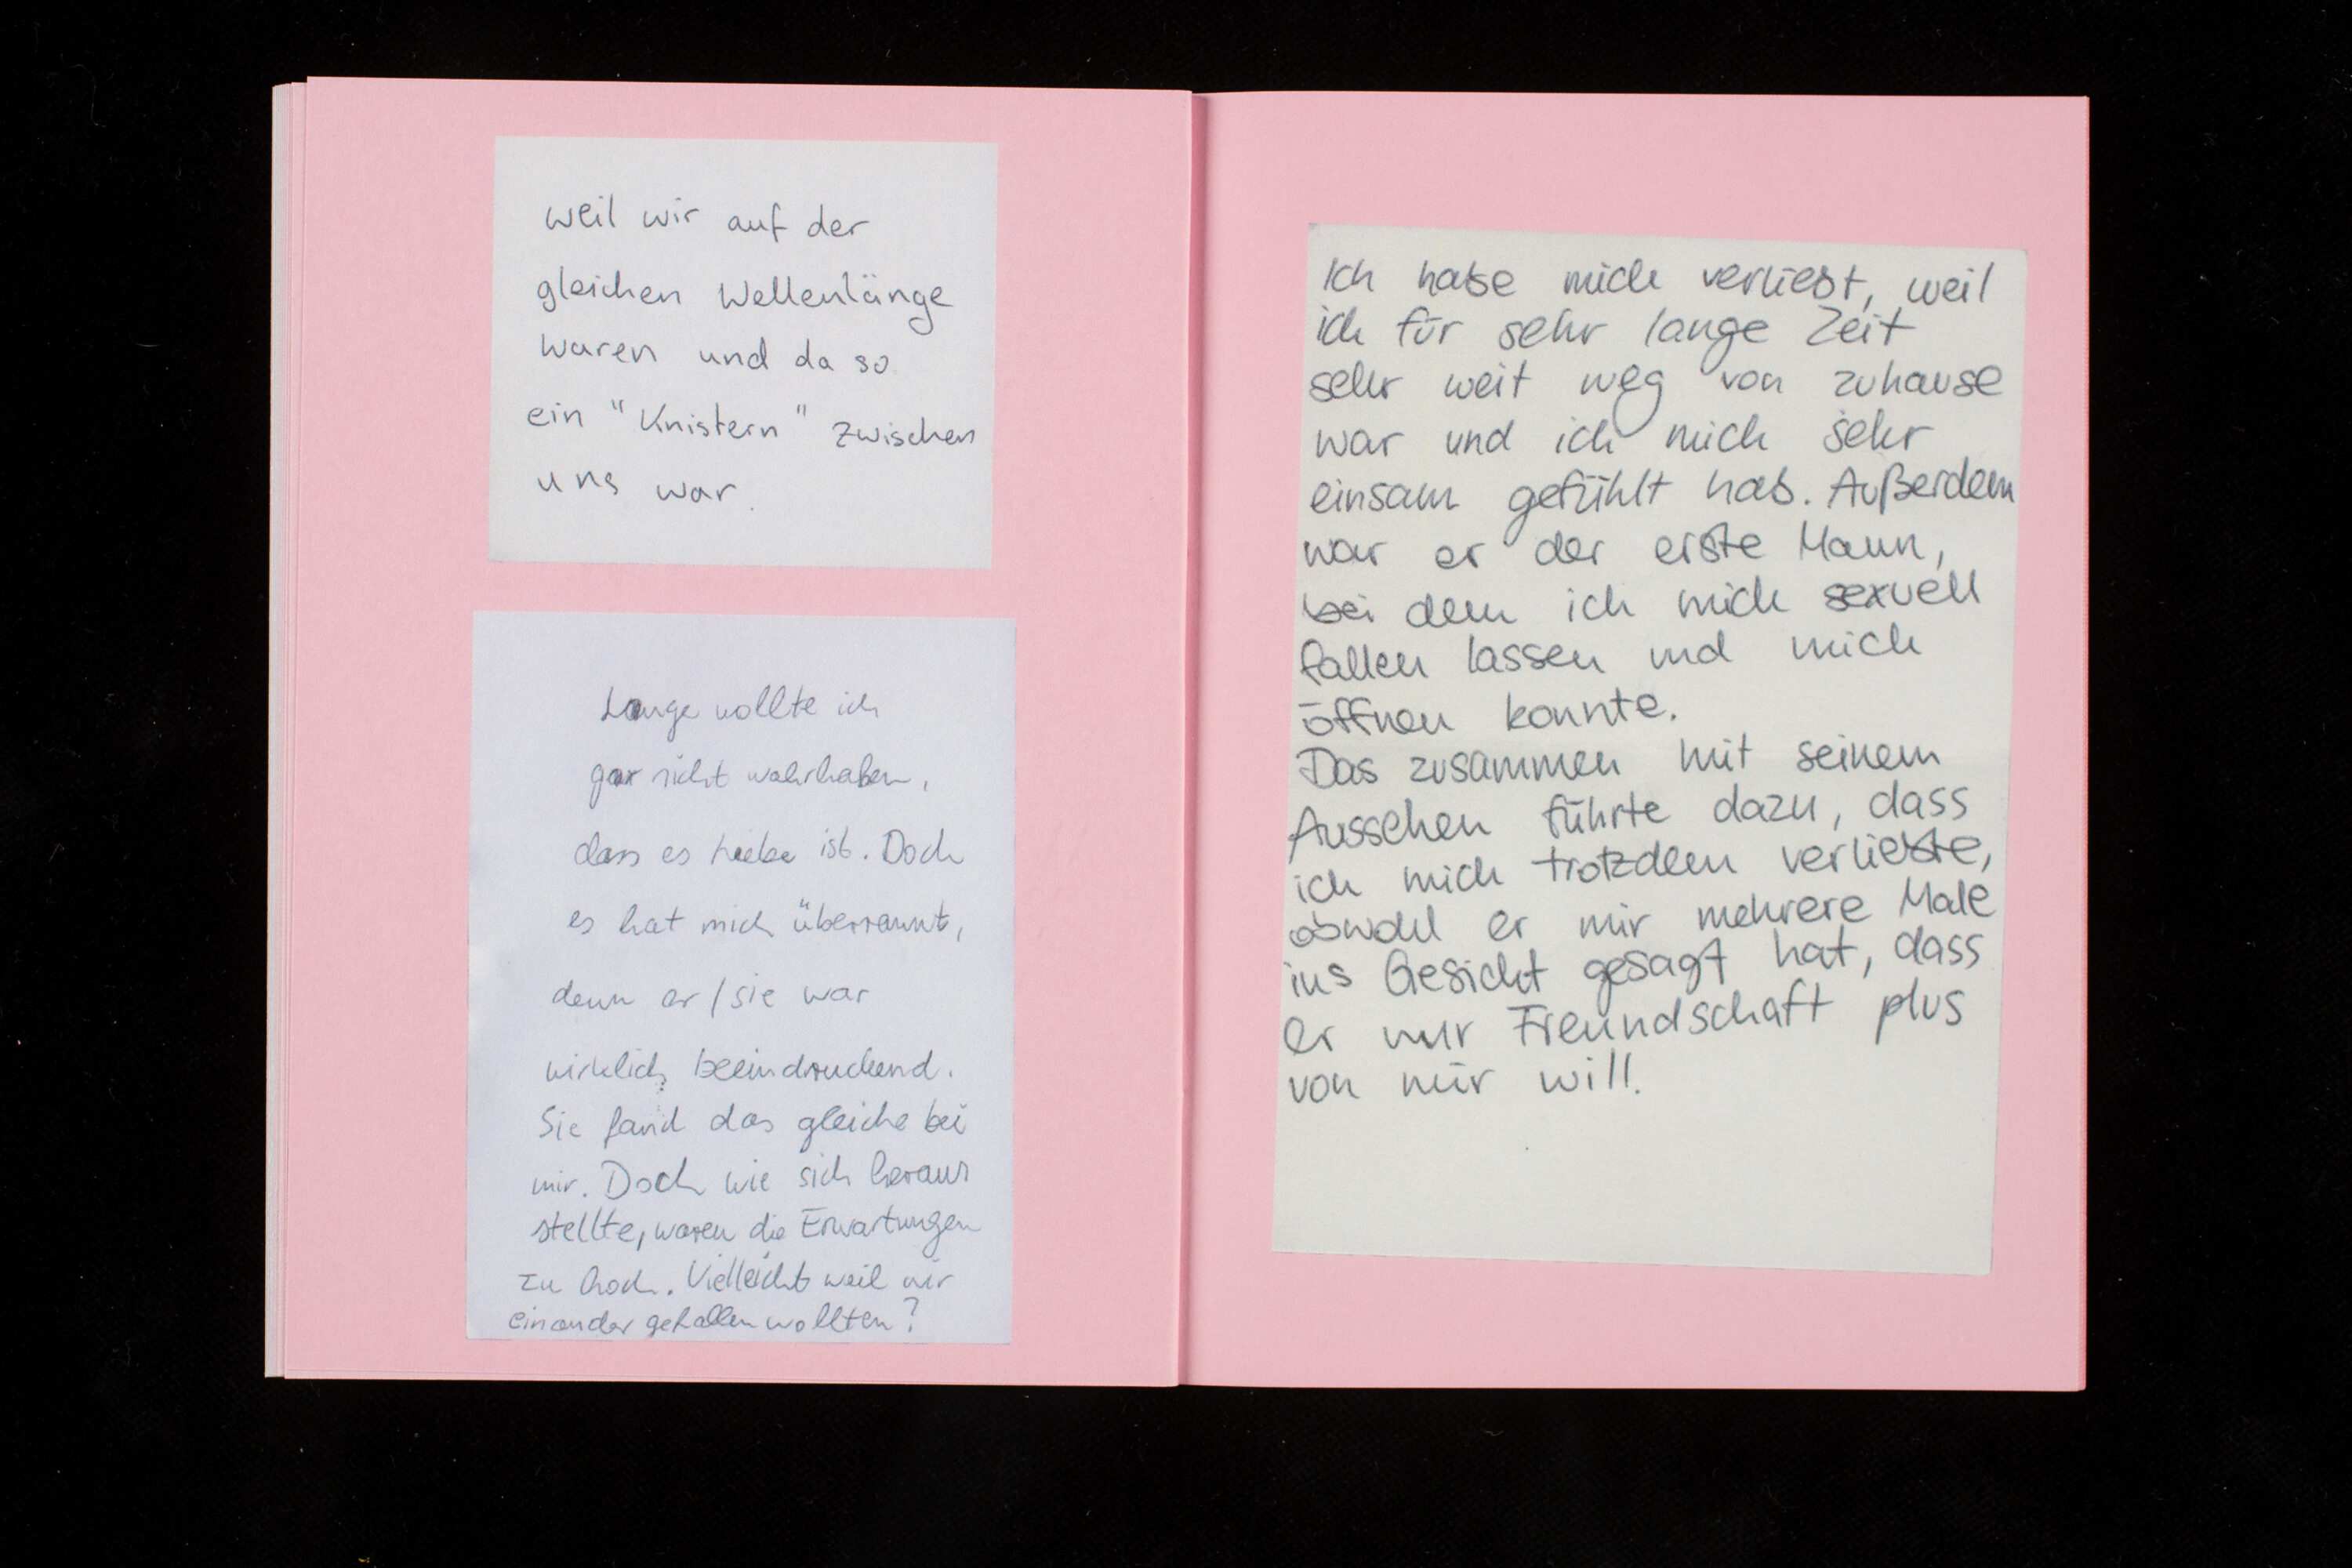 weil wir auf der
gleichen Wellenlänge
waren und da so
ein "Knistern" zwischen
uns war.
Lange wollte ich
gar nicht wahrhaben,
dass es Liebe ist. Doch
es hat mich überrannt,
denn er/sie war
wirklich beeindruckend.
Sie fand das gleiche bei
mir. Doch wie sich heraus
stellte, waren die Erwartungen
zu hoch. Vielleicht weil wir
einander gefallen wollten?
Ich habe mich verliebt, weil
ich für sehr lange Zeit
sehr weit weg von zuhause
war und ich mich sehr
einsam gefühlt hab. Außerdem
war er der erste Mann,
bei dem ich mich sexuell
fallen lassen und mich
öffnen konnte.
Das zusammen mit seinem
Aussehen führte dazu, dass
ich mich trotzdem verliebte,
obwohl er mir mehrere Male
ins Gesicht gesagt hat, dass
er nur Freundschaft plus
von mir will.